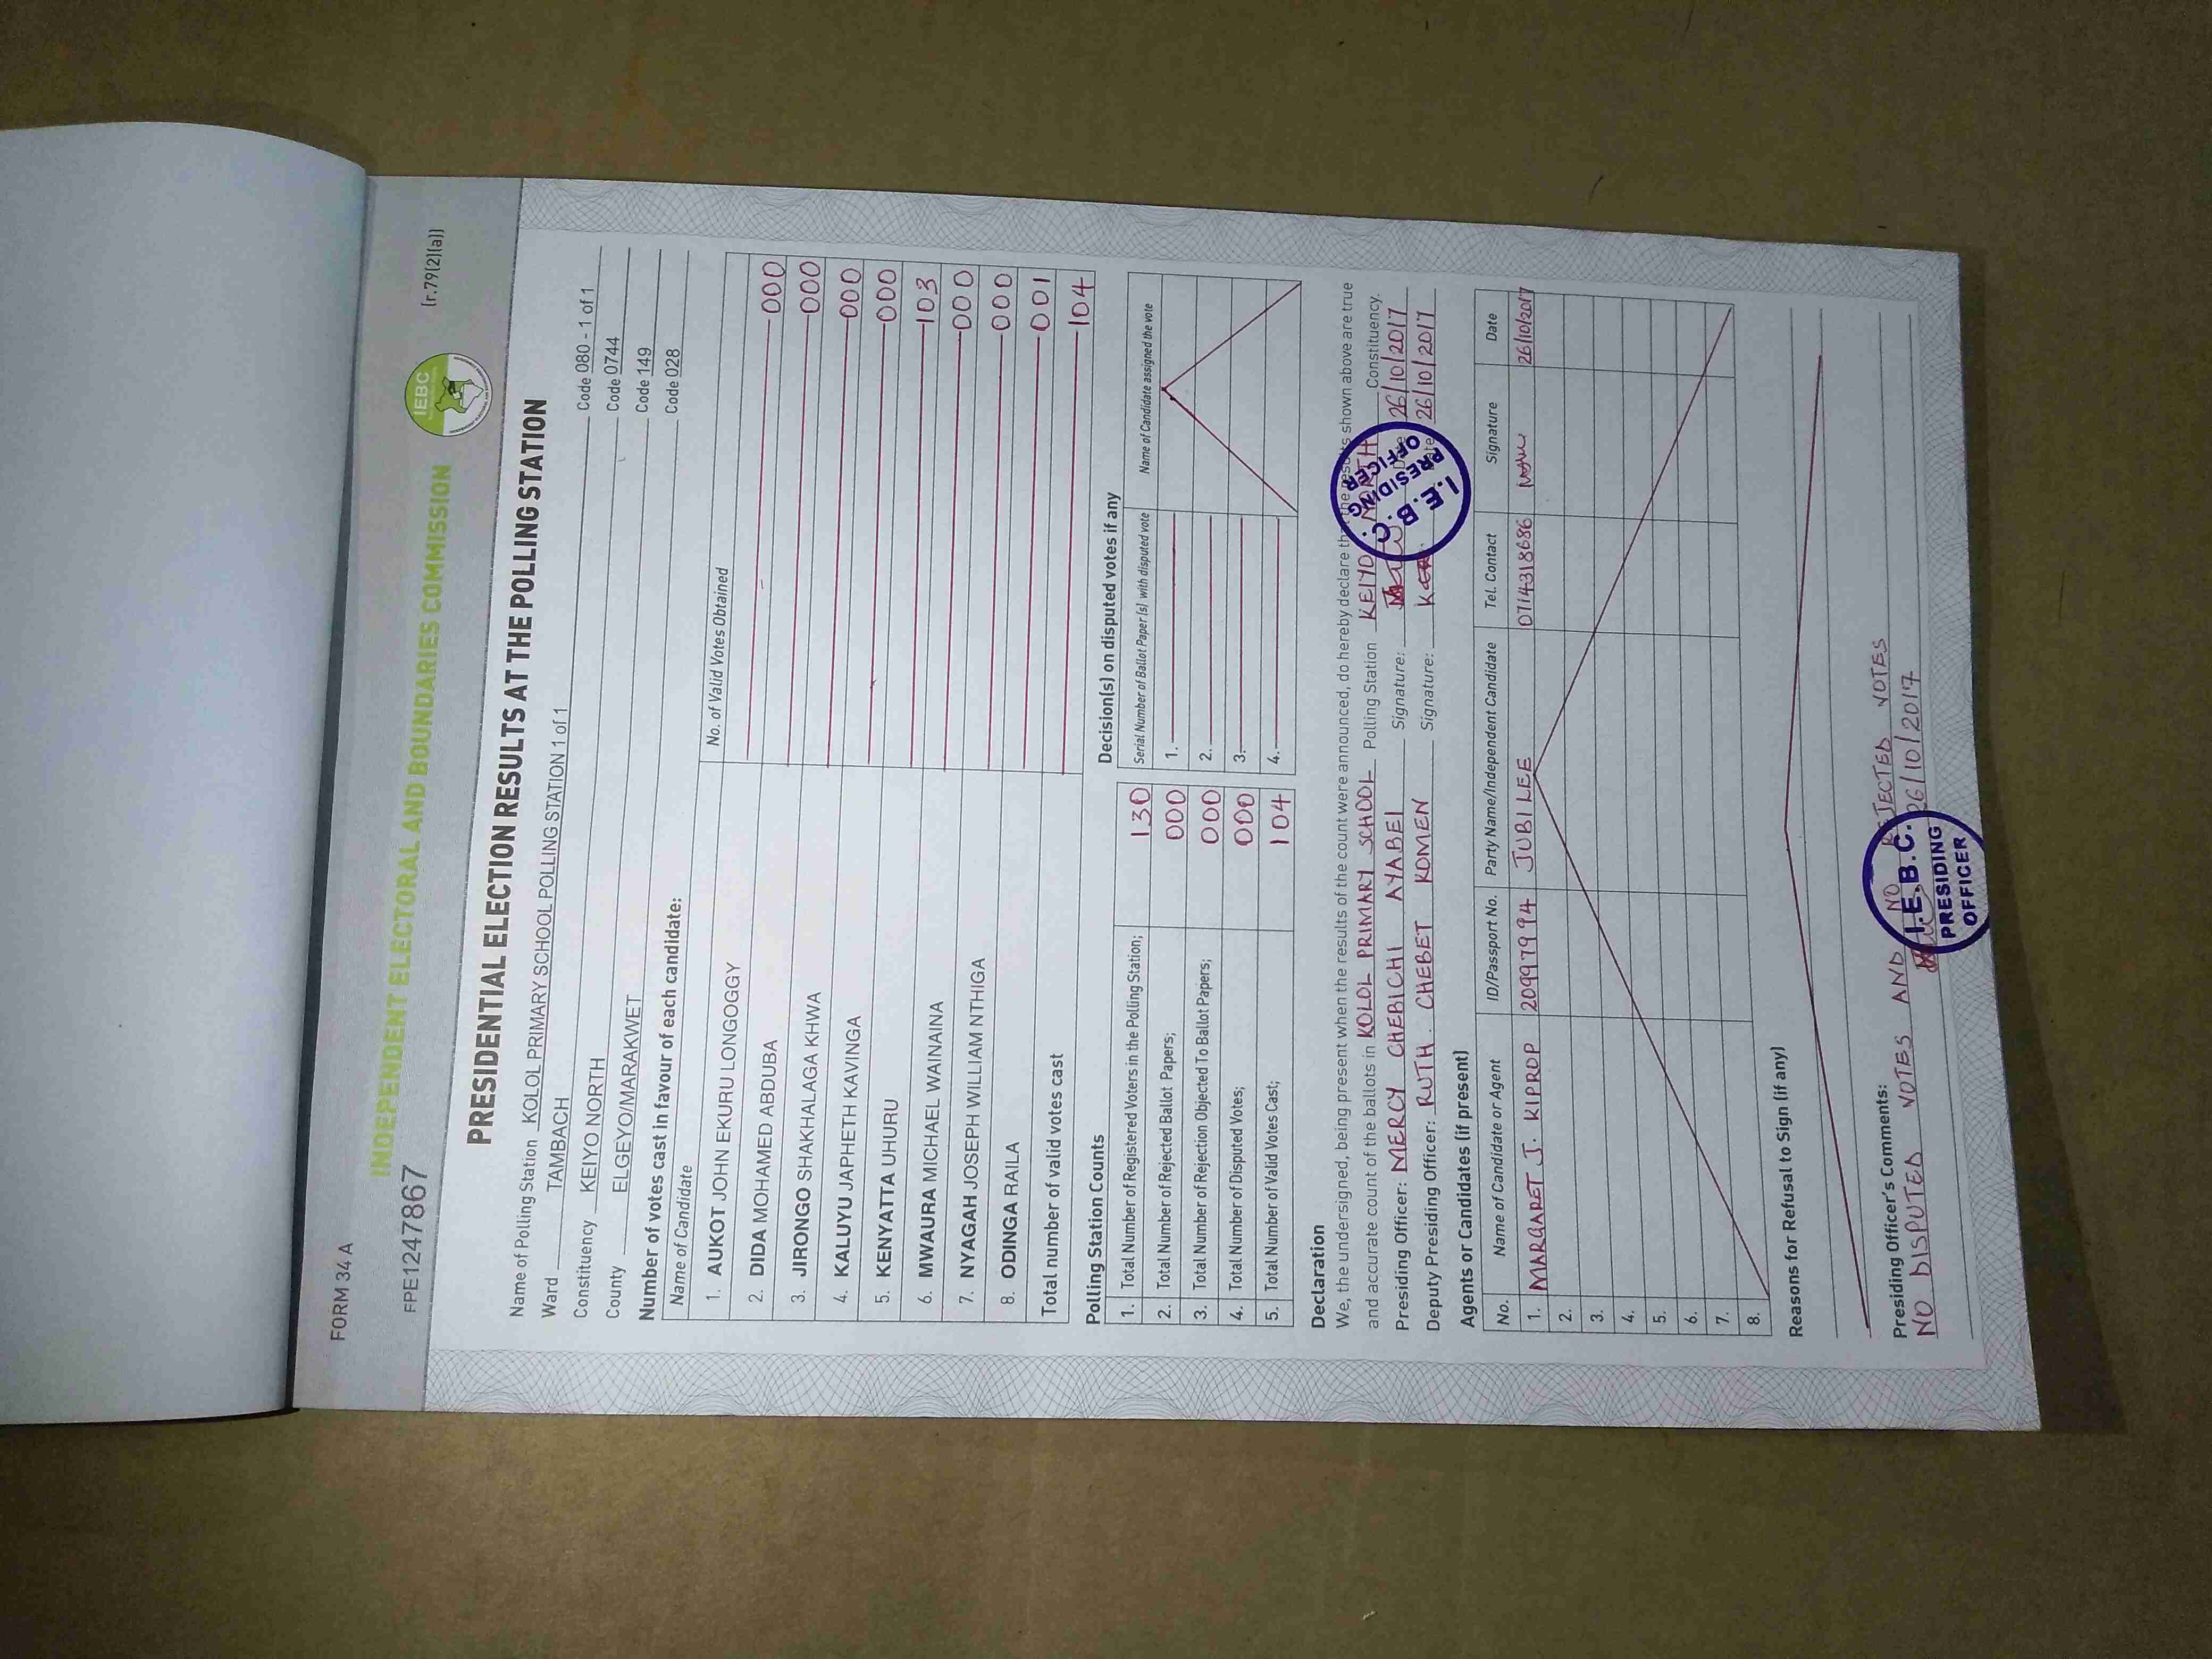 FORM 34 A
FPE1247867
[r.79(2)(a)]
INDEPENDENT ELECTORAL AND BOUNDARIES COMMISSION
IEBC
PRESIDENTIAL ELECTION RESULTS AT THE POLLING STATION
Name of Polling Station KOLOL PRIMARY SCHOOL POLLING STATION 1 of 1 Code 080 - 1 of 1
Ward TAMBACH Code 0744
Constituency KEIYO NORTH Code 149
County ELGEYO/MARAKWET Code 028
Number of votes cast in favour of each candidate:
Name of Candidate No. of Valid Votes Obtained
1. AUKOT JOHN EKURU LONGOGGY 000
2. DIDA MOHAMED ABDUBA 000
3. JIRONGO SHAKHALAGA KHWA 000
4. KALUYU JAPHETH KAVINGA 000
5. KENYATTA UHURU 103
6. MWAURA MICHAEL WAINAINA 000
7. NYAGAH JOSEPH WILLIAM NTHIGA 000
8. ODINGA RAILA 001
Total number of valid votes cast 104
Polling Station Counts
1. Total Number of Registered Voters in the Polling Station; 130
2. Total Number of Rejected Ballot Papers; 000
3. Total Number of Rejection Objected To Ballot Papers; 000
4. Total Number of Disputed Votes; 000
5. Total Number of Valid Votes Cast; 104
Decision(s) on disputed votes if any
Serial Number of Ballot Paper (s) with disputed vote Name of Candidate assigned the vote
1.
2.
3.
4.
Declaration
We, the undersigned, being present when the results of the count were announced, do hereby declare that the results shown above are true
and accurate count of the ballots in KOLOL PRIMARY SCHOOL Polling Station KEIYO NORTH Constituency.
Presiding Officer: MERCY CHEBICHI AYABEI Signature: Date 26/10/2017
Deputy Presiding Officer: RUTH. CHEBET KOMEN Signature: Date 26/10/2017
I.E.B.C. PRESIDING OFFICER
Agents or Candidates (if present)
No. Name of Candidate or Agent ID/Passport No. Party Name/Independent Candidate Tel. Contact Signature Date
1. MARGARET J. KIPROP 20997994 JUBILEE 0714318686 26/10/2017
2.
3.
4.
5.
6.
7.
8.
Reasons for Refusal to Sign (if any)
Presiding Officer's Comments:
NO DISPUTED VOTES AND NO REJECTED VOTES
26/10/2017
I.E.B.C.
PRESIDING
OFFICER